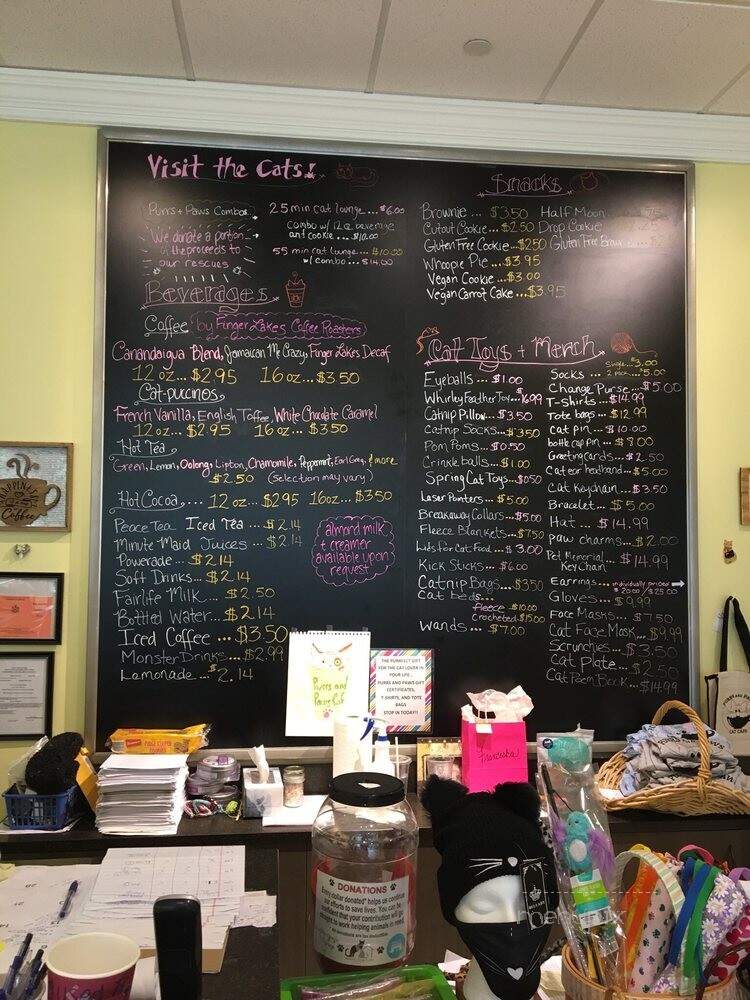 Visit the Cats!
Purrs + Paws Combos
We donate a portion
of the proceeds to
our rescues
25 min cat lounge ... $6.00
combo w/ 12oz beverage
and cookie ... $10.00
55 min cat lounge ... $10.00
w/ combo ... $14.00
Beverages
Coffee by Finger Lakes Coffee Roasters
Canandaigua Blend, Jamaican Me Crazy, Finger Lakes Decaf
12 oz... $2.95 16 oz... $3.50
Cat-puccinos
French Vanilla, English Toffee, White Chocolate Caramel
12 oz... $2.95 16 oz... $3.50
Hot Tea
Green, Lemon, Oolong, Lipton, Chamomile, Peppermint, Earl Grey, & more
$2.50 (selection may vary)
Hot Cocoa ... 12 oz... $2.95 16oz... $3.50
Peace Tea Iced Tea ... $2.14
Minute Maid Juices ... $2.14
Powerade ... $2.14
Soft Drinks ... $2.14
Fairlife Milk ... $2.50
Bottled Water ... $2.14
Iced Coffee ... $3.50
Monster Drinks ... $2.99
Lemonade ... $2.14
almond milk
+ creamer
available upon
request
Snacks
Brownie ... $3.50 Half Moon
Cutout Cookie ... $2.50 Drop Cookie
Gluten Free Cookie ... $2.50 Gluten Free
Whoopie Pie ... $3.95
Vegan Cookie ... $3.00
Vegan Carrot Cake ... $3.95
Cat Toys + Merch
Eyeballs ... $1.00
Whirley Feather Toy ... $6.99
Catnip Pillow ... $3.50
Catnip Socks ... $3.50
Pom Poms ... $0.50
Crinkle balls ... $1.00
Spring Cat Toys ... $0.50
Laser Pointers ... $5.00
Breakaway Collars ... $5.00
Fleece Blankets ... $7.50
Lids for Cat Food ... $3.00
Kick Sticks ... $6.00
Catnip Bags ... $3.50
Cat beds ...
fleece ... $10.00
Crocheted $15.00
Wands ... $7.00
Socks ... Single ... $3.00
2 pack ... $5.00
Change Purse ... $5.00
T-Shirts ... $14.99
Tote bags ... $12.99
Cat pin ... $10.00
bottle cap pin ... $3.00
Greeting cards ... $2.50
Cat ear headband ... $5.00
Cat Keychain ... $3.50
Bracelet ... $5.00
Hat ... $14.99
paw charms ... $2.00
Pet Memorial
Key Chain $14.99
Earrings ... individually priced
$20.00 / $25.00
Gloves ... $9.99
Face Masks ... $7.50
Cat Face Mask ... $9.99
Scrunchies ... $3.50
Cat Plate ... $2.50
Cat Poem Book ... $14.99
Purrs and
Paws
THE PURRFECT GIFT
FOR THE CAT LOVER IN
YOUR LIFE.
PURRS AND PAWS GIFT
CERTIFICATES,
T-SHIRTS, AND TOTE
BAGS
STOP IN TODAY!!
Franceska!
Coffee
CAT CAFE
DONATIONS
Every dollar donated* helps us continue
our efforts to save lives. You can be
confident that your contribution will go
straight to work helping animals in need.